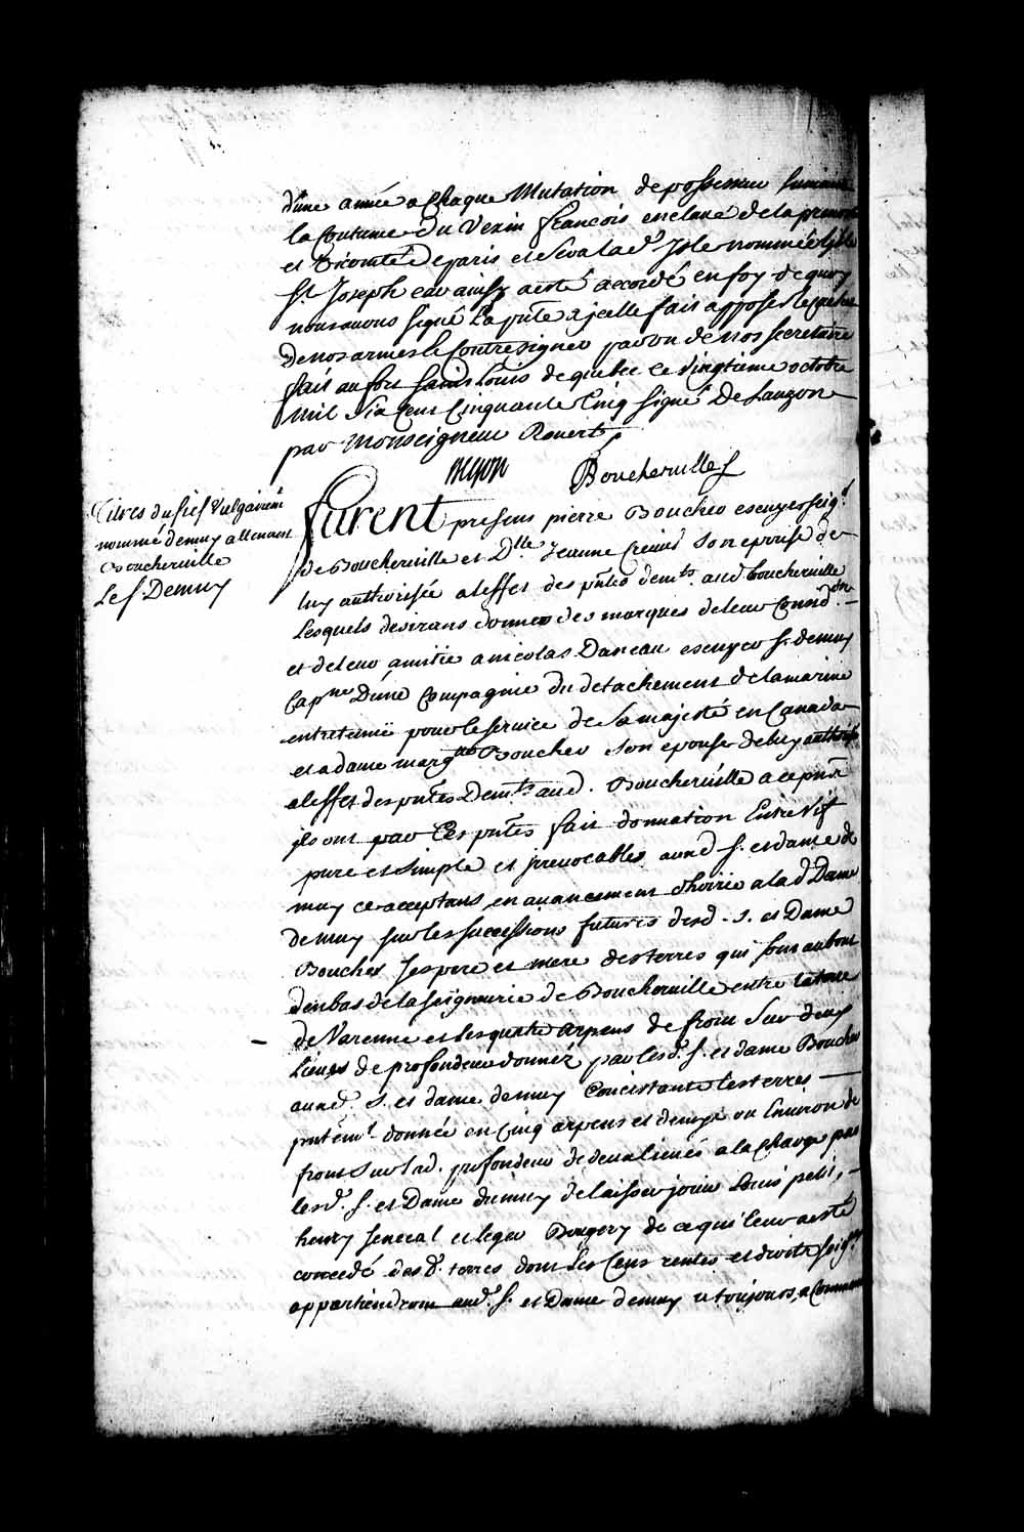 d'une année a chaque Mutation de possesseur suivant
la Coutume du Vexin françois enclavé de la prevosté
et Vicomté de paris et sera lad.e Isle nommée l'isle
St Joseph car ainsy a esté accordé en foy de quoy
nous avons signé La pnte a jcelle fait apposer le cachet
de nos armes le Contresigner par un de nos secretaire
fait au fort saint Louis de quebec ce vingtieme octobre
Mil Six Cens Cinquante Cinq signé De Lauzon
par Monseigneur Rouert
Boucherville
Titres du fief Vulgairemt
nommé demuy attenant
Boucherville
Le sr Demuy
furent presens pierre Boucher escuyer seigr
de Boucherville et Dlle Jeanne Crevier son epouse de
luy authorisée a leffet des pntes demts aud boucherville
Lesquels desirans donner des marques de leur Considon
et de leur amitié a nicolas Daneau escuyer sr demuy
Capne Dune Compagnie du detachement de la marine
entretenüe pour le service de Sa majesté en Canada
et a dame margtte Boucher son epouse de luy authorisée
a leffet des pntes Demts aud. Boucherville a ce pnt
ils ont par Ces pntes fait donnation Entre Vif
pure et simple et jrrevocables aux d s. et dame de
muy ce acceptans en avancement dhoirie a la d Dame
Demuy sur les successions futures desd. s. et Dame
Boucher ses pere et mere des terres qui sont au bout
den bas de la seigneurie de Boucherville entre la terre
de Varenne et les quatre arpens de front Sur deux
Lieues de profondeur donnéz par lesd. s. et dame Boucher
auxd. s. et dame demuy Concistante les terres
pntemt donnée en Cinq arpens et demye ou Environ de
front sur lad. profondeur de deux lieües a la Charge par
lesd. s. et Dame demuy de laisser jouir Louis petit,
henry senecal et leger Bougery de ce qui leur a esté
concedé des d. terres dont les Cens rentes et droits seigrx
appartiendront aud. s. et Dame demuy a toujours, a Commencer